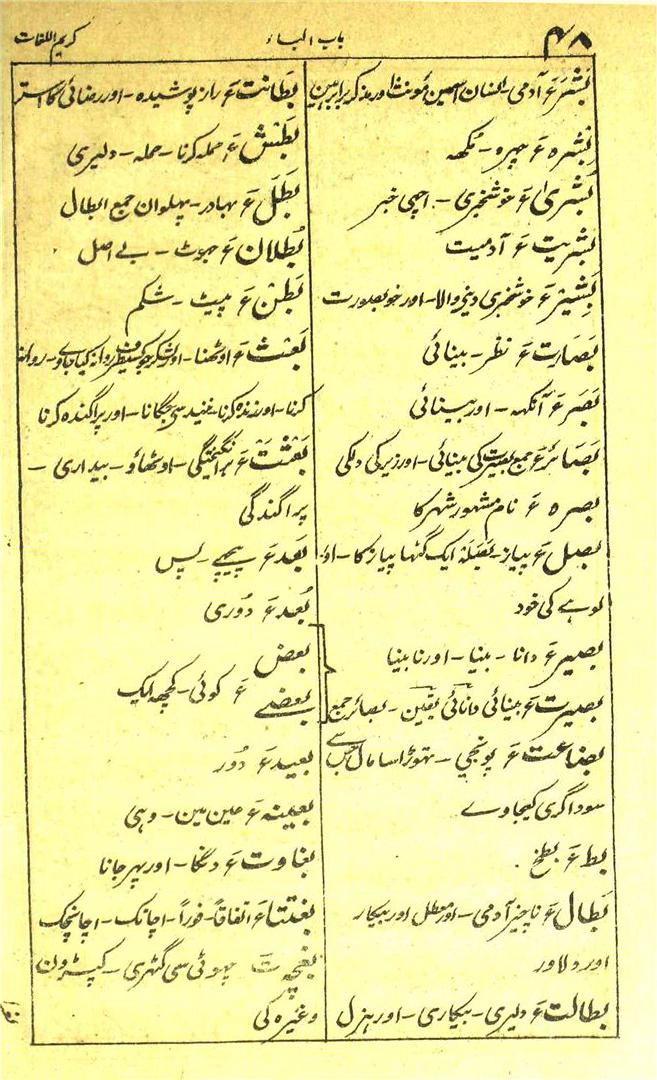 ۴۸
باب الباء
کریم اللغات
بَشَر ء آدمی۔ انسان اسمین مونث اور مذکر برابر ہین
بَشره ء چہرہ۔ مُکھہ
بُشریٰ ء خوشخبری۔ اچھی خبر
بشریت ء آدمیت
بَشِیْر ء خوشخبری دینے والا۔ اور خوبصورت
بَصَارت ء نظر۔ بینائی
بَصَر ء آنکھہ۔ اور بینائی
بَصَائر ء جمع بصیرت کی بینائی۔ اور زیرکی دلکی
بصره ء نام مشہور شہر کا
بصل ء پیاز۔ بَصَلَة ایک گٹھا پیاز کا۔ اور
لوہے کی خود
بصیر ء دانا۔ بینا۔ اور نابینا
بصیرت ء بینائی دانائی یقین۔ بصائر جمع
بضاعت ء پونجي۔ تہوڑا سا مال جس سے
سوداگری کیجاوے
بط ء بطخ
بَطال ء ناچیز آدمی۔ اور معطل اور بیکار
اور دلاور
بطالت ء دلیری۔ بیکاری۔ اور ہزل
بِطانت ء راز پوشیدہ۔ اور رضائی کا استر
بَطْش ء حملہ کرنا۔ حملہ۔ دلیری
بَطَل ء بہادر۔ پہلوان جمع ابطال
بُطلان ء جھوٹ۔ بے اصل
بَطْن ء پیٹ۔ شکم
بَعْث ء اوٹھنا۔ اور لشکر جو کسیطرف روانہ کیا جاوے۔ روانہ
کرنا۔ اور زندہ کرنا۔ نیند سی جگانا۔ اور پراگندہ کرنا
بَعْثَت ء برانگیختگی۔ اوٹھاؤ۔ بیداری۔
پراگندگی
بَعد ء پیچھے۔ پس
بُعد ء دُوری
بعض
بعضے ء کوئی۔ کچھہ ایک
بعید ء دُور
بعینہ ء عین مین۔ وہی
بغاوت ء دنگا۔ اور پھر جانا
بغتتا ء اتفاقاً۔ فوراً۔ اچانک۔ اچانچک
بغچہ ت چھوٹی سی گٹھری۔ کپڑون
وغیرہ کی